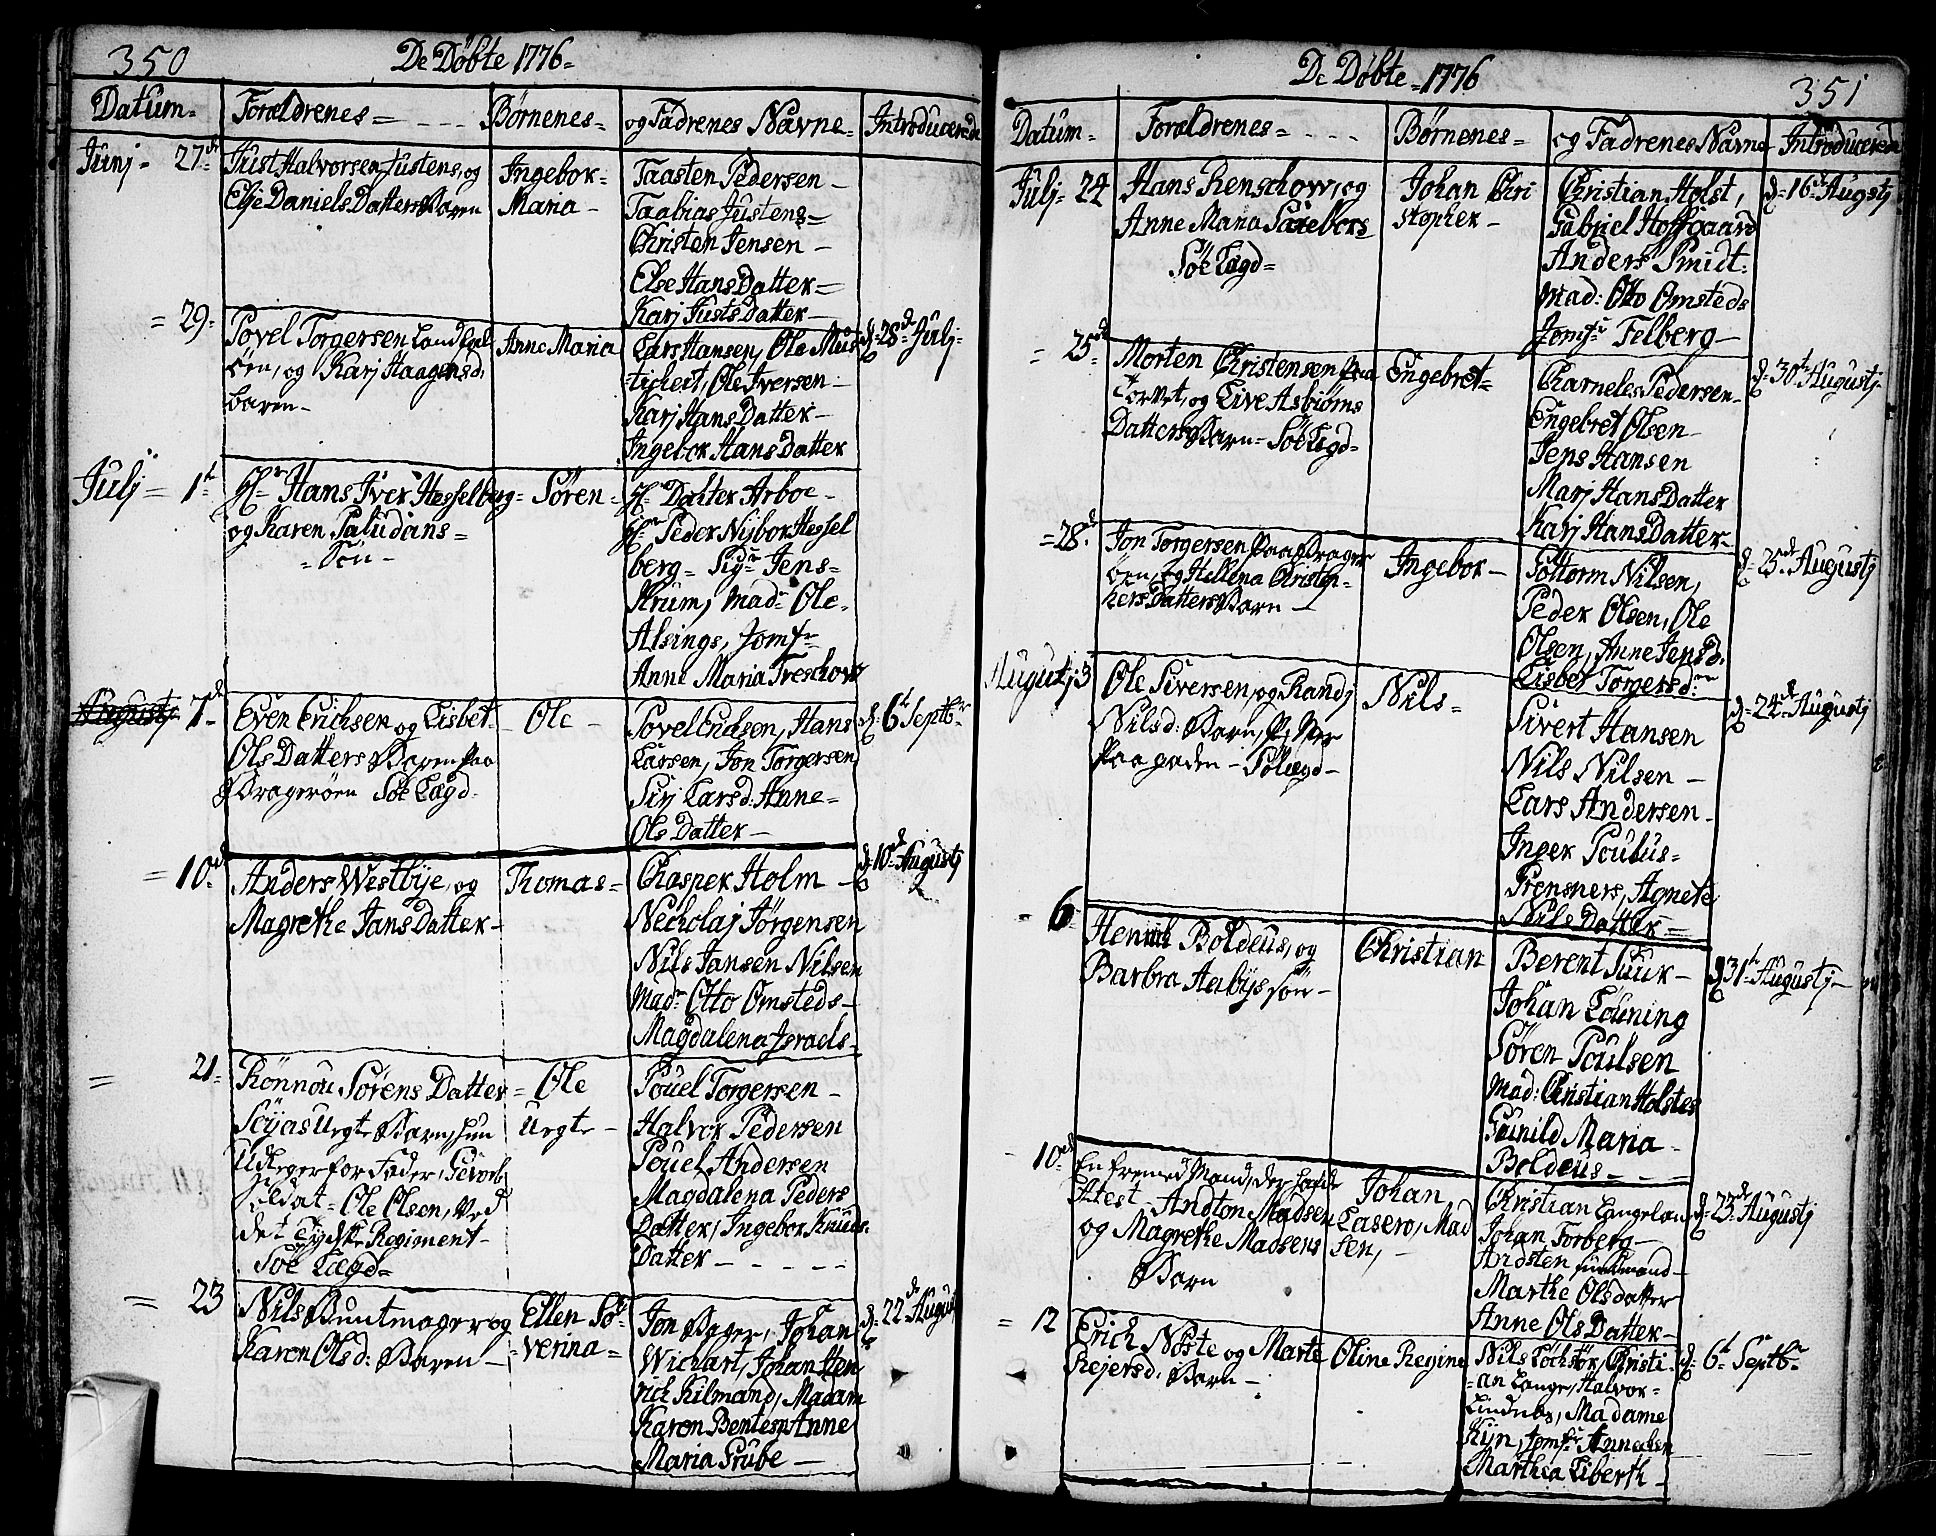 350
De Døbte 1776
Datum
Foræludrenes
Børnenes
og Fadrenes Navne
Introducered
Junj 27de
Just Halvorsen Justens, og
Elje Daniels Datters Barn
Ingebor
Maria
Taasten Pedersen
Taabias Justens
Christen Jensen
Else Hans Datter
Karj Justs Datter
29
Povel Torgersen Landfal
öen, og Karj Haagensd.
barn
Anne Maria
Lars Hansen, Ole Mus
tichert, Ole Iversen
Karj Hans Datter
Ingebor Hans Datter
d. 28de Julj
Julj 1t
Hr Hans Iver Hesselberg
og Karen Paludans
Sön
Sören
Hr Dakter Arboe
Hr Peder Nijbor Hessel
berg Sigr Jens
Krum, Madr Ole
Alsings, Jomfr
Anne Maria Treschow
Augustj 7de
Even Erichsen og Lisbet
Ols Datters Barn paa
Bragerøen Söe Lægd
Ole
Povel Endsen, Hans
Larsen, Jon Torgersen
Sirj Larsd: Anne
Ols Datter
d. 6t Septbr
10de
Anders Westbÿe, og
Magrethe Jans Datter
Thomas
Chasper Holm
Necholaj Jørgensen
Nils Jansen Nilsen
Madr Otto Omsteds
Magdalena Israels
d. 10de Augustj
21
Rönnou Sörens Datter
Söÿas Uegte Barn, hun
Udleger for Fader, Gevorb
Soldat Ole Olsen, ved
det Tydske Regiment
Söe Lægd
Ole
Uegte
Pouel Torgersen
Halvor Pedersen
Pouel Andersen
Magdalena Peders
Datter, Ingebor Knuds
Datter
23
Nils Buntmager og
Karen Olsd: Barn
Ellen Sö
verina
Jon Bager, Johan
Wichart, Johan Hen
rich Kilmand, Madam
Karen Bentsen, Anne
Maria Grube
d. 22de August
De Døbte 1776
351
Datum
Foræludrenes
Børnenes
og Fadrenes Navne
Introducered
Julj 24
Hans Renschow, og
Anne Maria Sarebors
Söe Lægd
Johan Chri
stopher
Christian Holst,
Gabriel Hoffgaard
Anders Smidt
Mad: Otto Omsteds
Jomfr Felberg
d. 16de Augstj
25de
Morten Christensen paa
Torvet, og Live Asbiøms
Datters Barn Söe Lægd
Engebret
Charneles Pedersen
Engebret Olsen
Jens Hansen
Marj Hans Datter
Karj Hans Datter
d. 30t Augustj
28de
Jon Torgersen paa Brager
öen, og Hellena Christop
hers Datters Barn
Ingebor
Gottorm Nilsen,
Peder Olsen, Ole
Olsen, Anne Jensd.
Lisbet Torgersd:
d. 25de Augustj
Augustj 3
Ole Siversen, og Randj
Nilsd: Barn,
Paagaden Sölægd
Nils
Sivert Hansen
Nils Nilsen
Lars Andersen
Inger Poulus
Prensners, Agnete
Nils Datter
d. 24de Augustj
6
Henrich Boldeus, og
Barbra Aabÿs sön
Christian
Berent Suur
Johan Löuning
Sören Poulsen
Mad: Christian Holstes
Gunild Maria
Boldeus
d. 31t Augustj
10de
En fremed Mand, der hafde
Atest, Andton Madsen
og Magrethe Madsens
Barn
Johan
Casero, Mad
sen,
Christian Langeland
Johan Forberg
Andsten
Marthe Olsdatter
Anne Ols Datter
d. 23de Augustj
12
Erich Nöste og Marte
Rejersd: Barn
Oline Regine
Nils Lochstör, Christi
an Lange, Halvor
Lindnbo, Madame
Kijn, Jomfr Annechen
Marthea Liberth
d. 6t Septbr